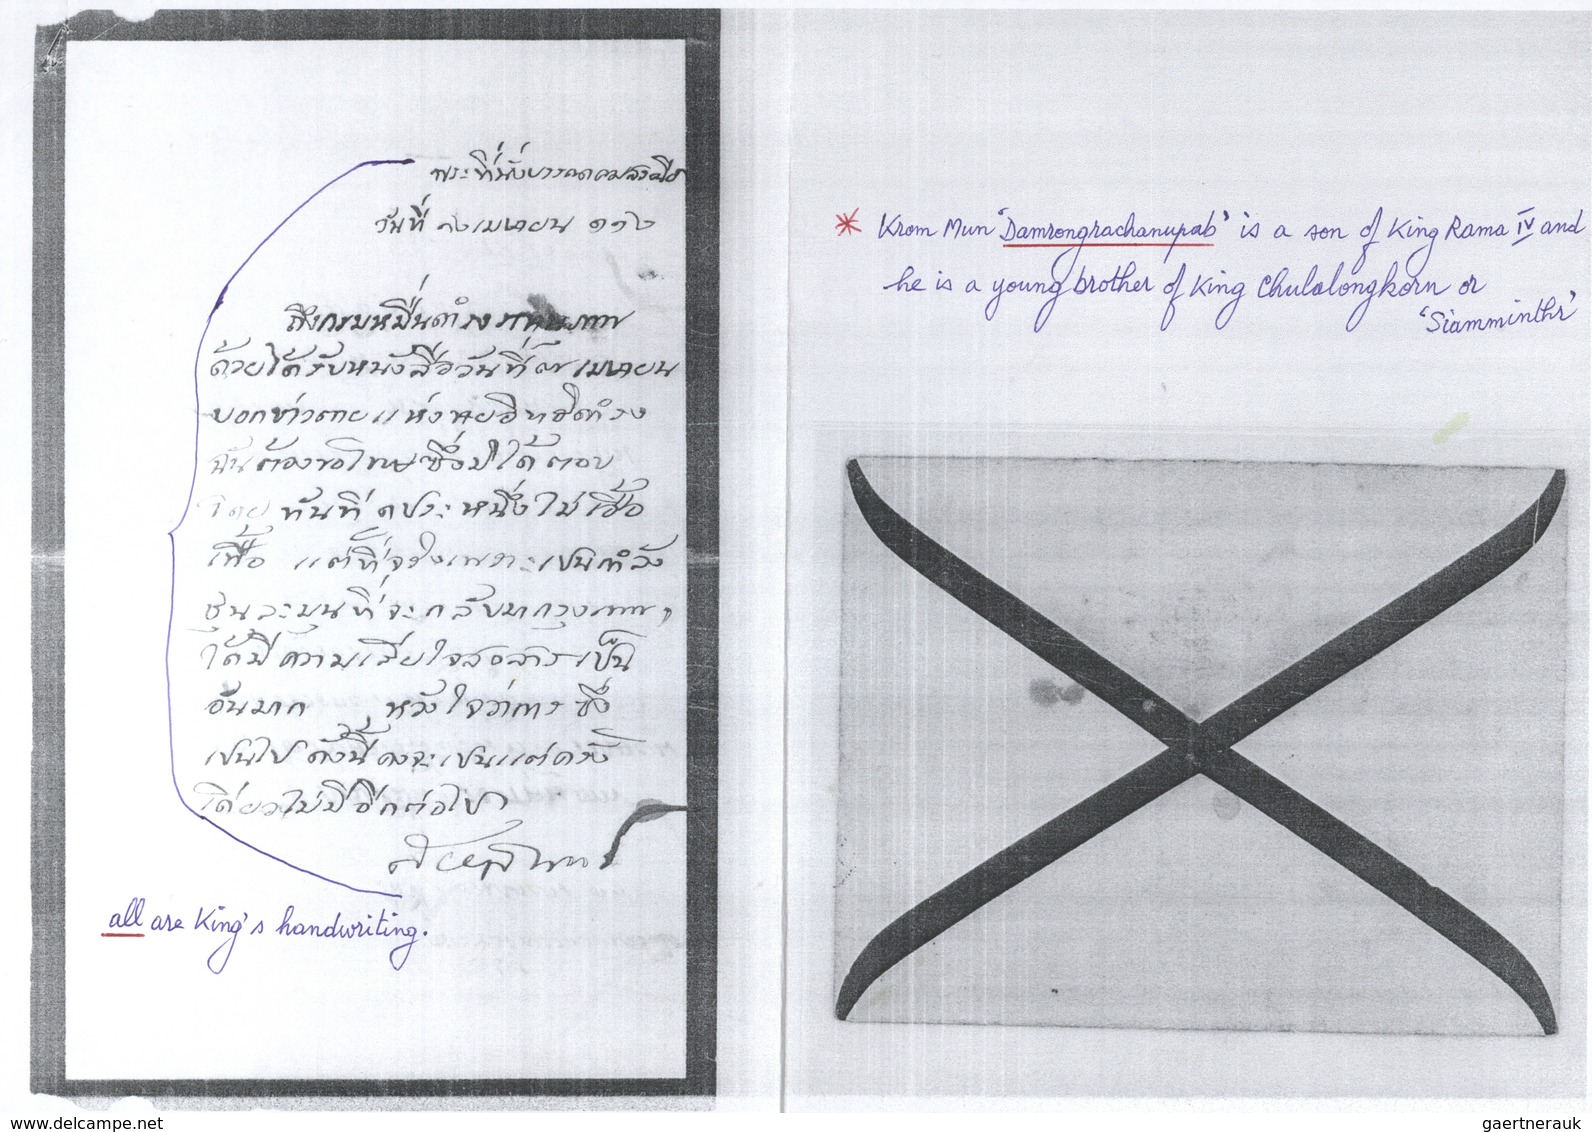 พระที่นั่งบรรคคมสรณีย์
วันที่ เมษายน ๑๑
ถึงกรมหมื่นดำรงราชานุภาพ
ด้วยได้รับหนังสือวันที่ ๗ เมษายน
บอกข่าวตายแห่ง
ฉันต้องขอโทษซึ่งมิได้ตอบ
โดยทันที ดุประหนึ่งไม่เอื้อ
เฟื้อ แต่ที่จริงเพราะเปนกำลัง
ชุนละมุนที่จะกลับมากรุงเทพฯ
ได้มีความเสียใจสงสารเป็น
อันมาก หวังใจว่าการซึ่ง
เปนไปดังนี้คงจะเปนแต่ครั้ง
เดียวไม่มีอีกต่อไป
สยามินทร์
all are King's handwriting.
* Krom Mun 'Damrongrachanupab' is a son of King Rama IV and
he is a young brother of King Chulalongkorn or
'Siamminthr'
www.delcampe.net
gaertnerauk